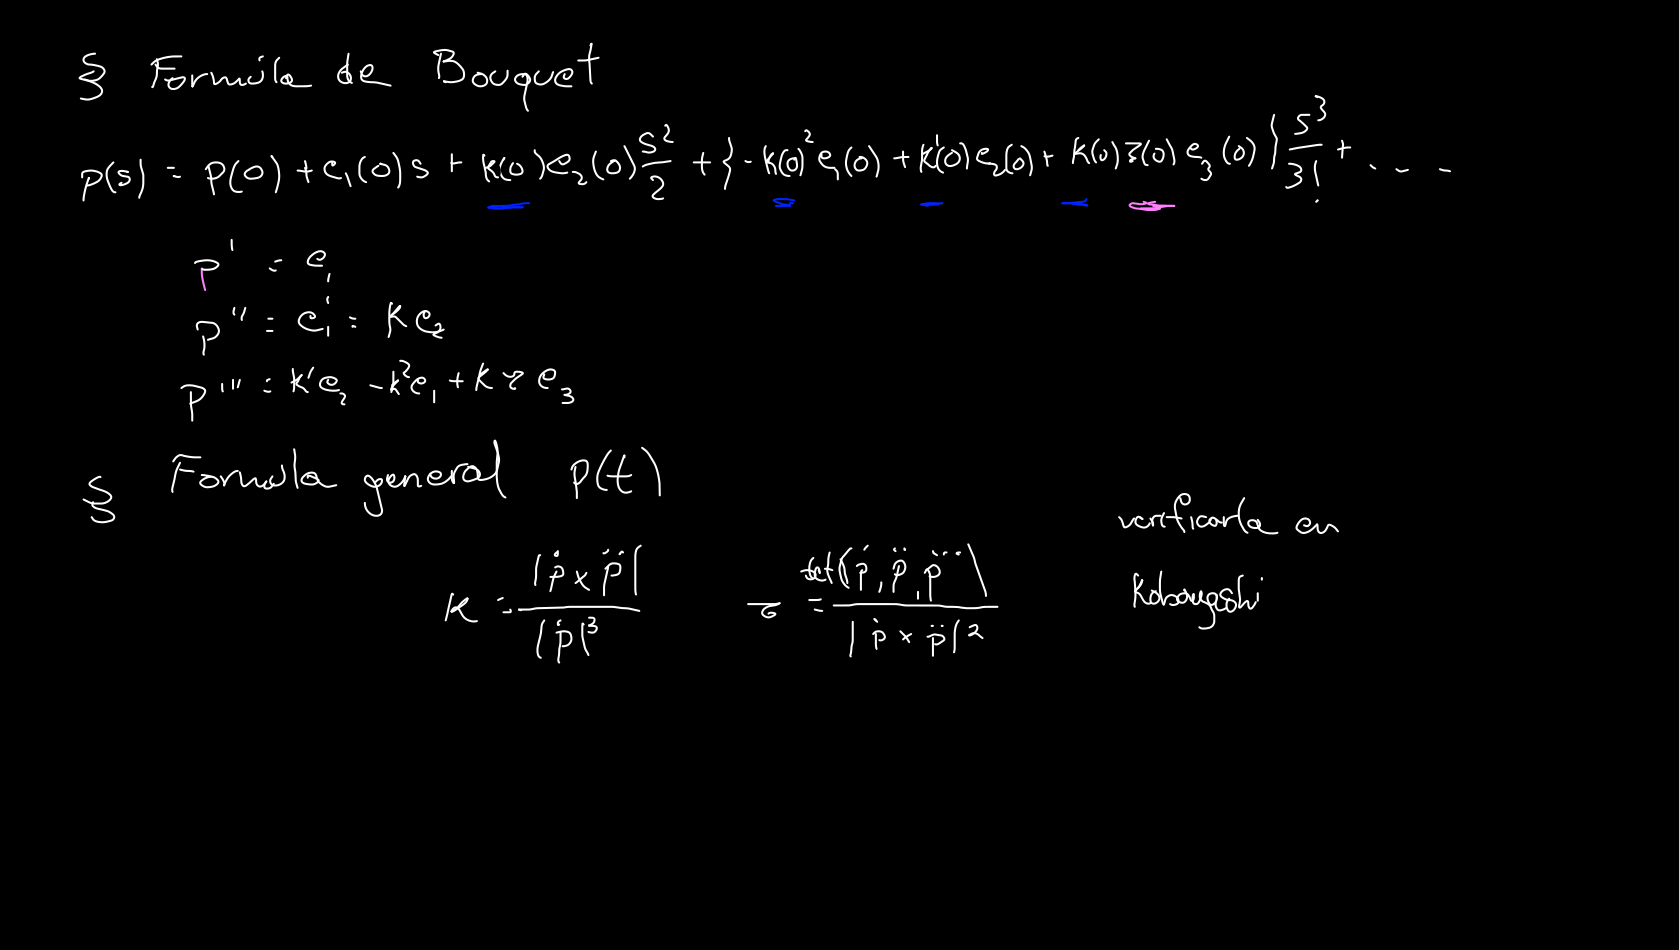 § Formula de Bouquet
p(s) = p(0) + e₁(0)s + k(0)e₂(0) s²/2 + {-k(0)²e₁(0) + k'(0)e₂(0) + k(0)τ(0)e₃(0)} s³/3! + ...
p' = e₁
p'' = e₁' = k e₂
p''' = k'e₂ - k²e₁ + kτe₃
§ Formula general p(t)
κ = |ṗ × p̈| / |ṗ|³ τ = det(ṗ, p̈, p⃛) / |ṗ × p̈|²
verificarla en
Kobayashi